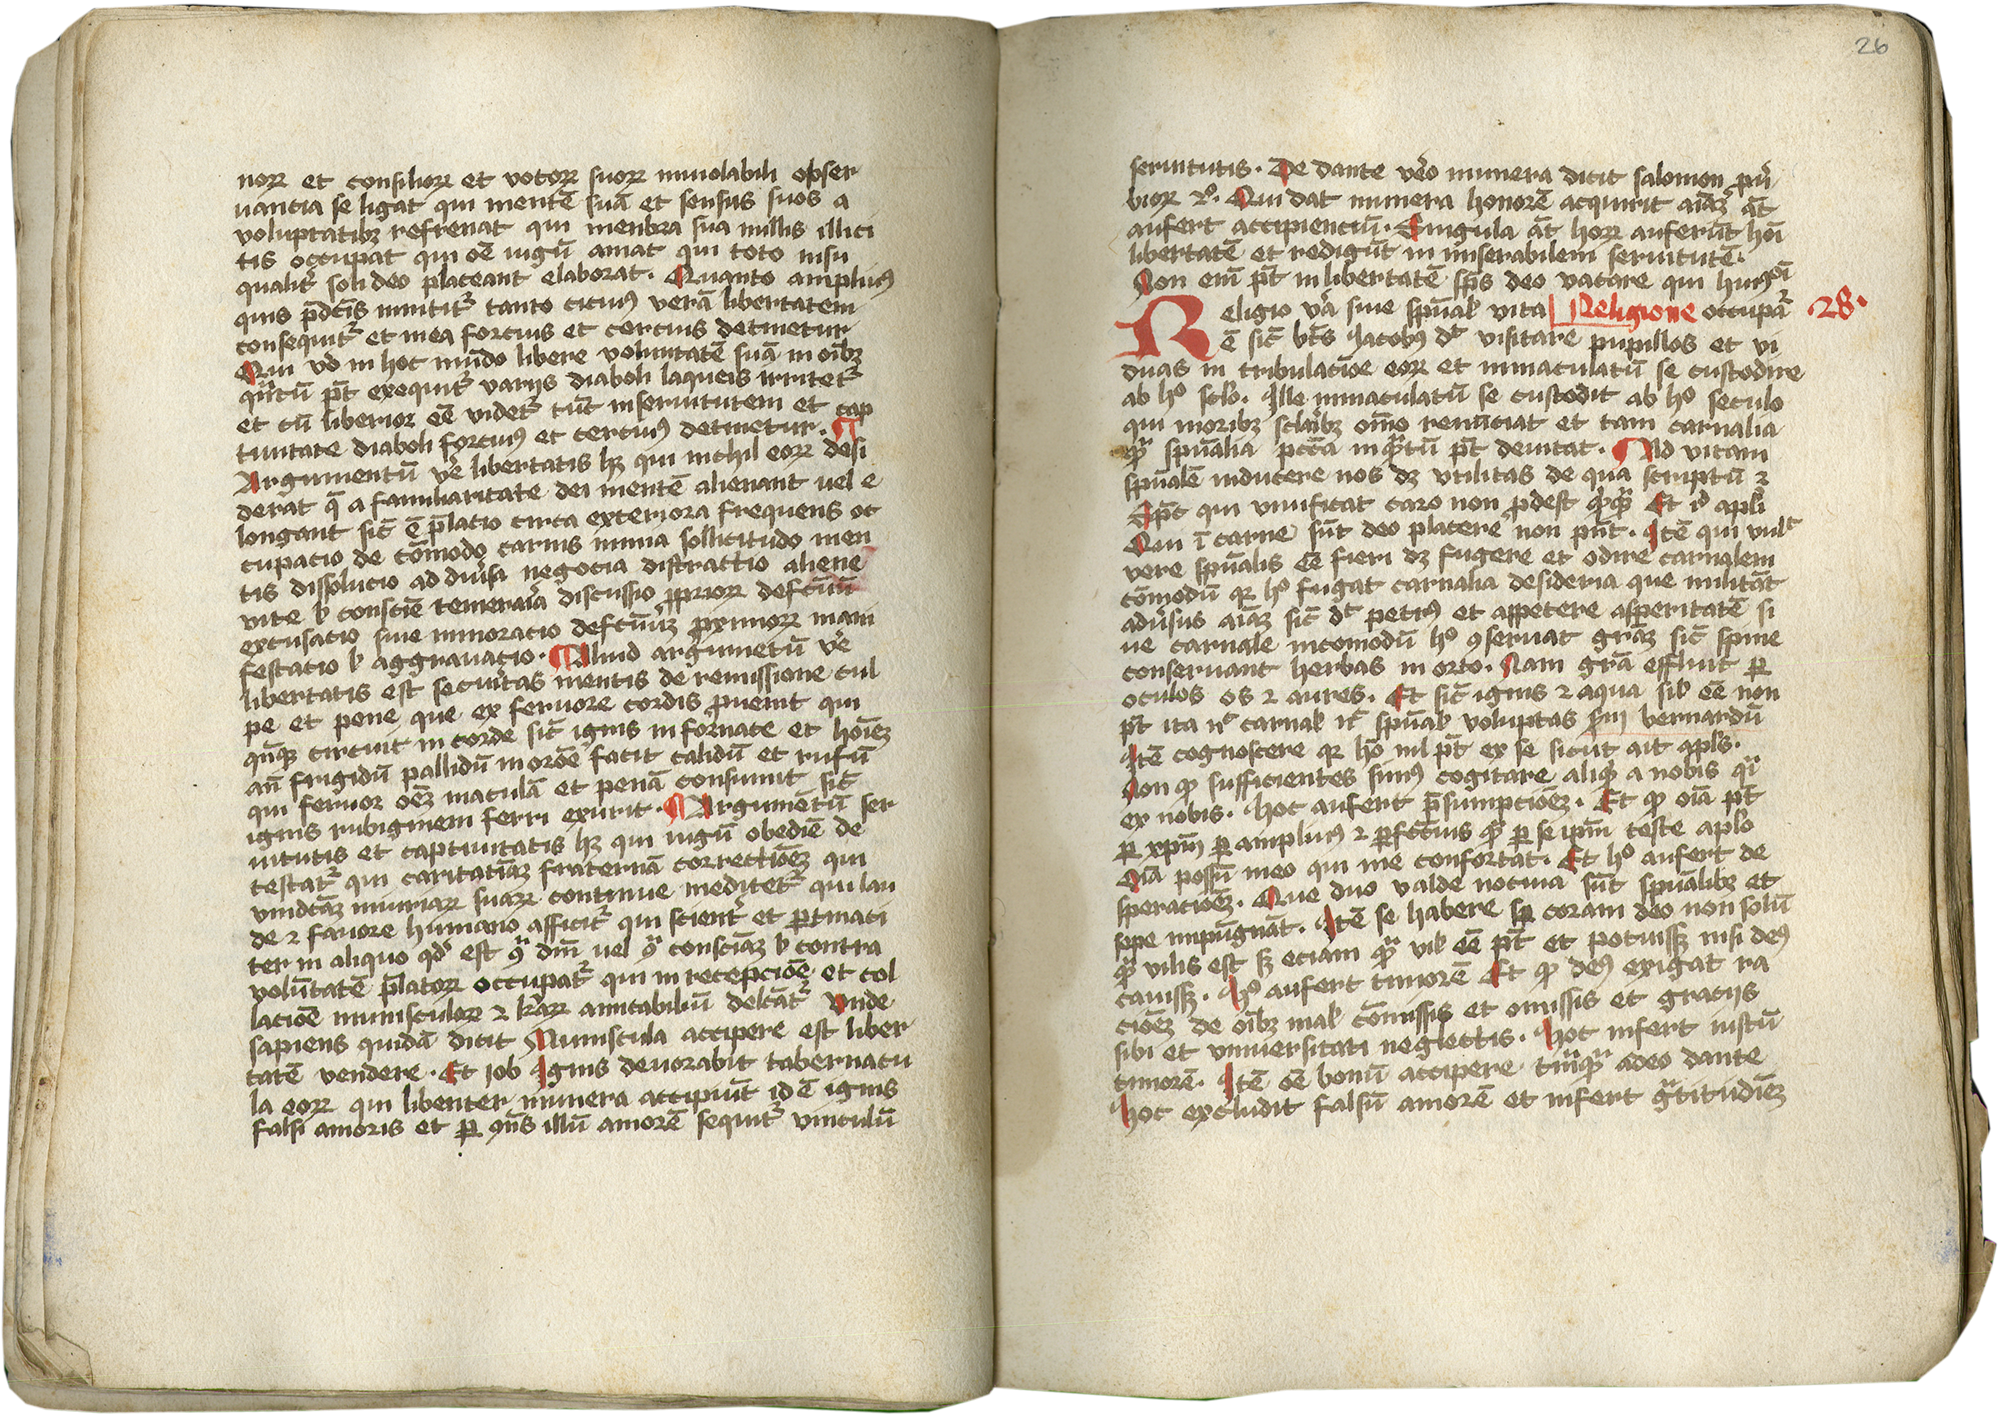 norꝝ et consiliorꝝ et votorꝝ suorꝝ inuiolabili obser
uancia se ligat qui mentē suā et sensus suos a
voluptatibꝫ refrenat qui menbra sua nullis illici
tis occupat qui oē iugū amat qui toto nisu
qualit͛ soli deo placeant elaborat. Quanto amplius
quis p̄dcīs innitit͛ tanto cicius verā libertatem
consequit͛ et in ea forcius et cercius detinetur
Qui vo in hoc mūdo libere voluntatē suā in oībꝫ
qn̄tū pt̄ exequit͛ varijs diaboli laqueis irritet͛
et cū liberior eē videt͛ tūc in seruitutem et cap
tiuitate diaboli forcius et cercius detinetur.
Argumentū ve͛ libertatis hꝫ qui nichil eorꝝ desi
derat q̄ a familiaritate dei mentē alienant uel e
longant sic̄ ē p̄latio circa exteriora frequens oc
cupacio de cōmodo carnis nimia sollicitudo men
tis dissolucio ad diu͛sa negocia distractio aliene
vite ł conscīe temeraria discussio ꝓpriorꝝ defctūū
excusatio siue minoracio defctūū ꝓximorꝝ mani
festacio ł aggrauacio. Aliud argumētū ve͛
libertatis est securitas mentis de remissione cul
pe et pene que ex feruore cordis ꝓuenit qui
circuit in corde sic̄ ignis in fornace et hoīeꝫ
an̄ frigidū pallidū in ordē facit calidū et rufū
qui feruor oēꝫ maculā et penā consumit sic̄
ignis rubiginem ferri exurit. Argumētū ser
uitutis et captiuitatis hꝫ qui iugū obediē de
testat͛ qui caritatiuā fraternā correctiōeꝫ qui
vindctāꝫ iniuriarꝝ suarꝝ continue meditet͛ qui lau
de ⁊ fauore humano afficit͛ qui scient͛ et ꝑtinaci
ter in aliquo qd͛ est 9ͣ dm̄ uel 9ͣ consciāꝫ ł contra
volūtatē p̄latorꝝ occupat͛ qui in recepcioē et col
lacioē munisculorꝝ ⁊ lr̄arꝝ amicabiliū delcāt͛ vnde
sapiens quidā dicit Muniscula accipere est liber
tatē vendere. Et iob Ignis deuorabit tabernacu
la eorꝝ qui libenter munera accipiūt id ē ignis
falsi amoris et ꝑ qn̄s illū amorē sequit͛ vinculū
26
seruitutis. De dante ve͛o munera dicit salomon ꝓu͛
biorꝝ. Qui dat munera honorē acquirit aīāꝫ āt
aufert accipienciū. Singula āt horꝝ auferūt hōi
libertatē et redigūt in miserabilem seruitutē.
Non eni pt̄ in libertatē sp̄s deo vacare qui
Religio v͛a siue spūalis vita Religione occupar͛ 28.
ē sic̄ bt̄s Jacobus dt͛ visitare pupillos et vi
duas in tribulacīoe eorꝝ et immaculatū se custodire
ab hͦ sclo. Ille immaculatū se custodit ab hͦ seculo
qui moribꝫ sclaribꝫ omīo renūciat et tam carnalia
qͣ spūalia pctā inqͣtū pt̄ deuitat. Ad vitam
spūalē inducere nos dꝫ vtilitas de qua scriptū ē
Sp̄t qui viuificat caro non ꝓdest Et apli
Qui ī carne sūt deo placere non pn̄t. Itē qui vult
vere spūalis eē fieri dꝫ fugere et odire carnalem
cōmodū qꝛ hͦ fugat carnalia desideria que militāt
adu͛sus aīāꝫ sic̄ dt͛ petrus et appetere asperitatē si
ue carnale incōmodū hͦ 9seruat grāꝫ sic̄ spine
conseruant herbas in orto. Nam grā effluit ꝑ
oculos os ⁊ aures. Et sic̄ ignis ⁊ aqua sił eē non
pt̄ ita carnał spūał voluptas scdm bernardū
Itē cognoscere qꝛ hō nil pt̄ ex se sicut ait apls.
Non ꝙ sufficientes simus cogitare aliqͥd a nobis qͣi
ex nobis. Hoc aufert p̄sumpcioēꝫ. Et ꝙ oīa pt̄
ꝑ xpm̄ ꝑ amplius ⁊ ꝑfctīus qͣ ꝑ se ipm̄ teste aplo
Oīa possū in eo qui me confortat. Et hͦ aufert de
speracioēꝫ. Que duo valde nociua sūt spūalibꝫ et
sepe impūgnāt. Itē se habere sꝑ coram deo non solū
qͣ vilis est sꝫ eciam qͣ vił eē pt̄ et potuissꝫ nisi deus
cauissꝫ. Hͦ aufert timorē Et ꝙ deus exigat ra
cioēꝫ de oībꝫ mał cōmissis et omissis et gracijs
sibi et vniuersitati neglectis. Hoc infert iustū
timorē. Itē oē bonū accipere tāqͣ a deo dante
Hoc excludit falsū amorē et infert gͣtitudīeꝫ